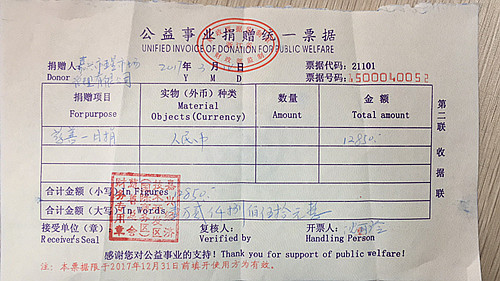 公益事业捐赠统一票据
UNIFIED INVOICE OF DONATION FOR PUBLIC WELFARE
捐赠人
Donor
2017年 3月 日
Y M D
票据代码: 21101
票据号码: 4500040052
捐赠项目
For purpose
实物（外币）种类
Material
Objects (Currency)
数量
Amount
金 额
Total amount
慈善一日捐
人民币
12850.-
第二联 收据联
合计金额（小写）In Figures 12850.-
合计金额（大写）In Words 壹万贰仟捌佰伍拾元整
接受单位（章）
Receiver's Seal
复核人:
Verified by
开票人:
Handling Person
感谢您对公益事业的支持! Thank you for support of public welfare!
注: 本票据限于2017年12月31日前填开使用方为有效。